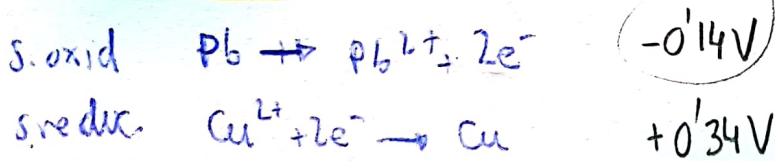 S. oxid Pb → Pb²⁺ + 2e⁻ -0'14V
S. reduc. Cu²⁺ + 2e⁻ → Cu +0'34V